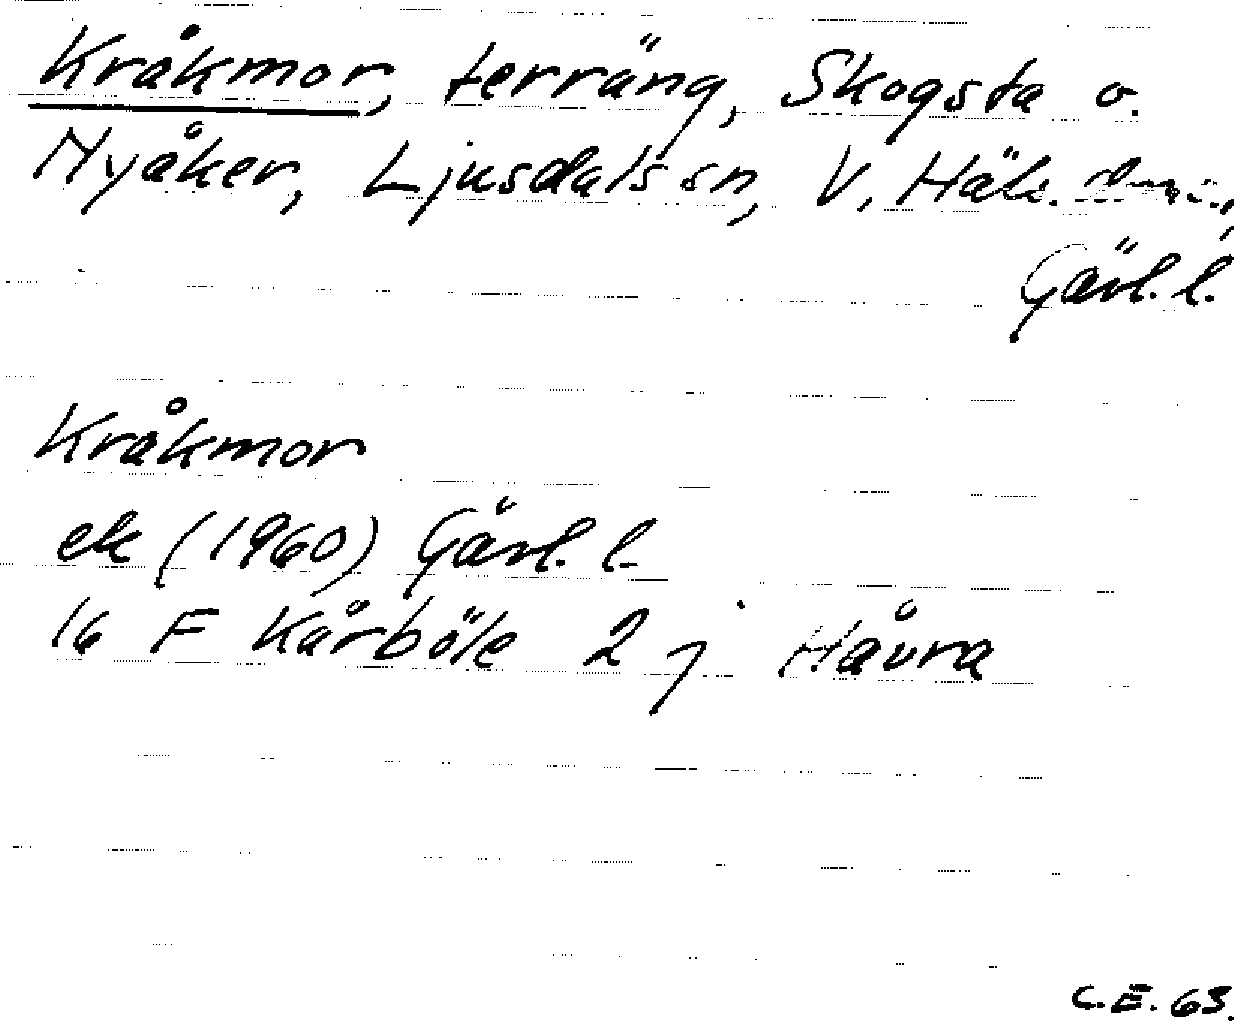 Kråkmor, terräng, Skogsta o.
Nyåker, Ljusdals sn, V. Häls.
Gävl. l.
Kråkmor
ek (1960) Gävl. l.
16 F Kårböle 2 j Håvra
C.E. 63.